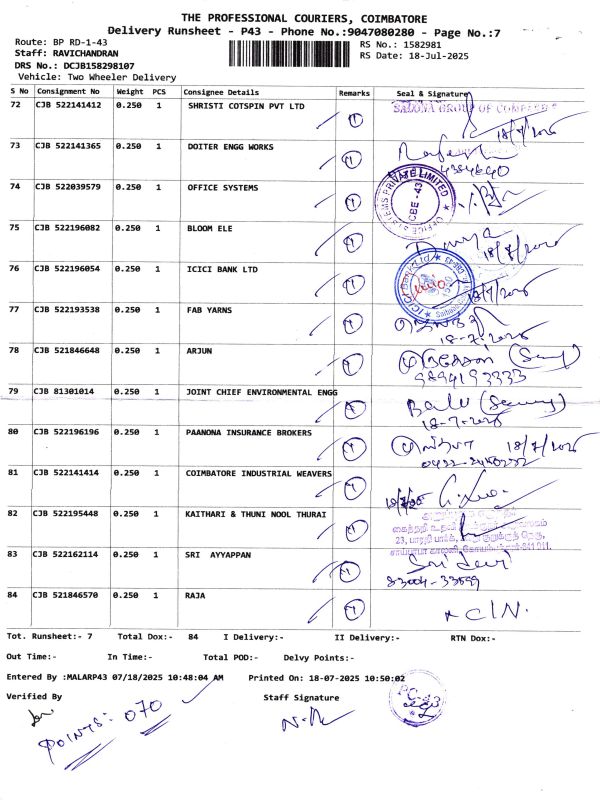 THE PROFESSIONAL COURIERS, COIMBATORE
Delivery Runsheet - P43 - Phone No.:9047080280 - Page No.:7
Route: BP RD-1-43
RS No.: 1582981
Staff: RAVICHANDRAN
RS Date: 18-Jul-2025
DRS No.: DCJB158298107
Vehicle: Two Wheeler Delivery
S No Consignment No Weight PCS Consignee Details Remarks Seal & Signature
72 CJB 522141412 0.250 1 SHRISTI COTSPIN PVT LTD 1
18/7/2025
73 CJB 522141365 0.250 1 DOITER ENGG WORKS 1 Rajesh
74 CJB 522039579 0.250 1 OFFICE SYSTEMS 1 OFFICE SYSTEMS PRIVATE LIMITED CBE - 43
75 CJB 522196082 0.250 1 BLOOM ELE 1 Divya
18/7/2025
76 CJB 522196054 0.250 1 ICICI BANK LTD 1 ICICI Bank Ltd
18/7/2025
77 CJB 522193538 0.250 1 FAB YARNS 1
18-7-2025
78 CJB 521846648 0.250 1 ARJUN 1
9894193333
79 CJB 81301014 0.250 1 JOINT CHIEF ENVIRONMENTAL ENGG 1
18-7-2025
80 CJB 522196196 0.250 1 PAANONA INSURANCE BROKERS 1 18/7/2025
81 CJB 522141414 0.250 1 COIMBATORE INDUSTRIAL WEAVERS 1
82 CJB 522195448 0.250 1 KAITHARI & THUNI NOOL THURAI 1
83 CJB 522162114 0.250 1 SRI AYYAPPAN 1 Sri devi
84 CJB 521846570 0.250 1 RAJA 1
Tot. Runsheet:- 7 Total Dox:- 84 I Delivery:- II Delivery:- RTN Dox:-
Out Time:- In Time:- Total POD:- Delvy Points:-
Entered By :MALARP43 07/18/2025 10:48:04 AM Printed On: 18-07-2025 10:50:02
Verified By Staff Signature
POINTS: 070